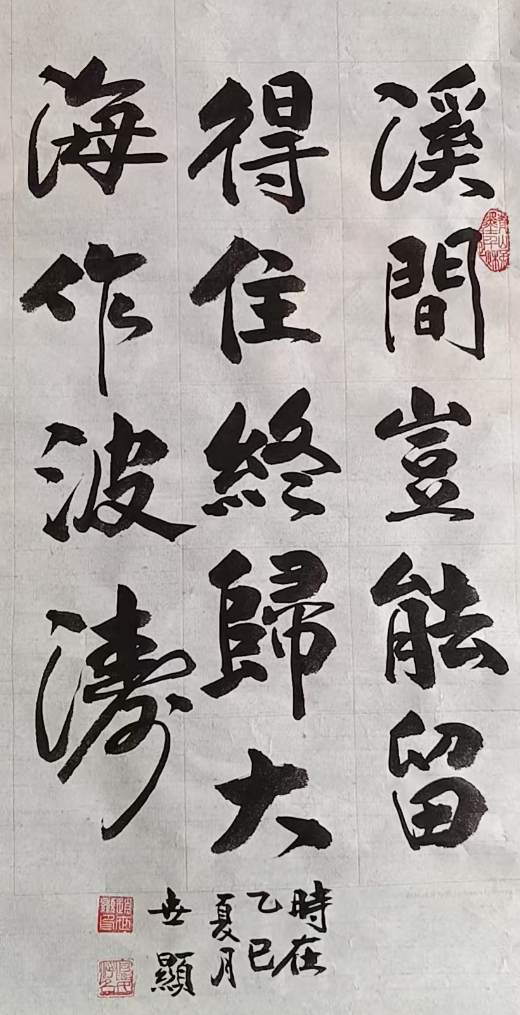 溪間豈能留
得住終歸大
海作波濤
時在
乙巳
夏月
世顯